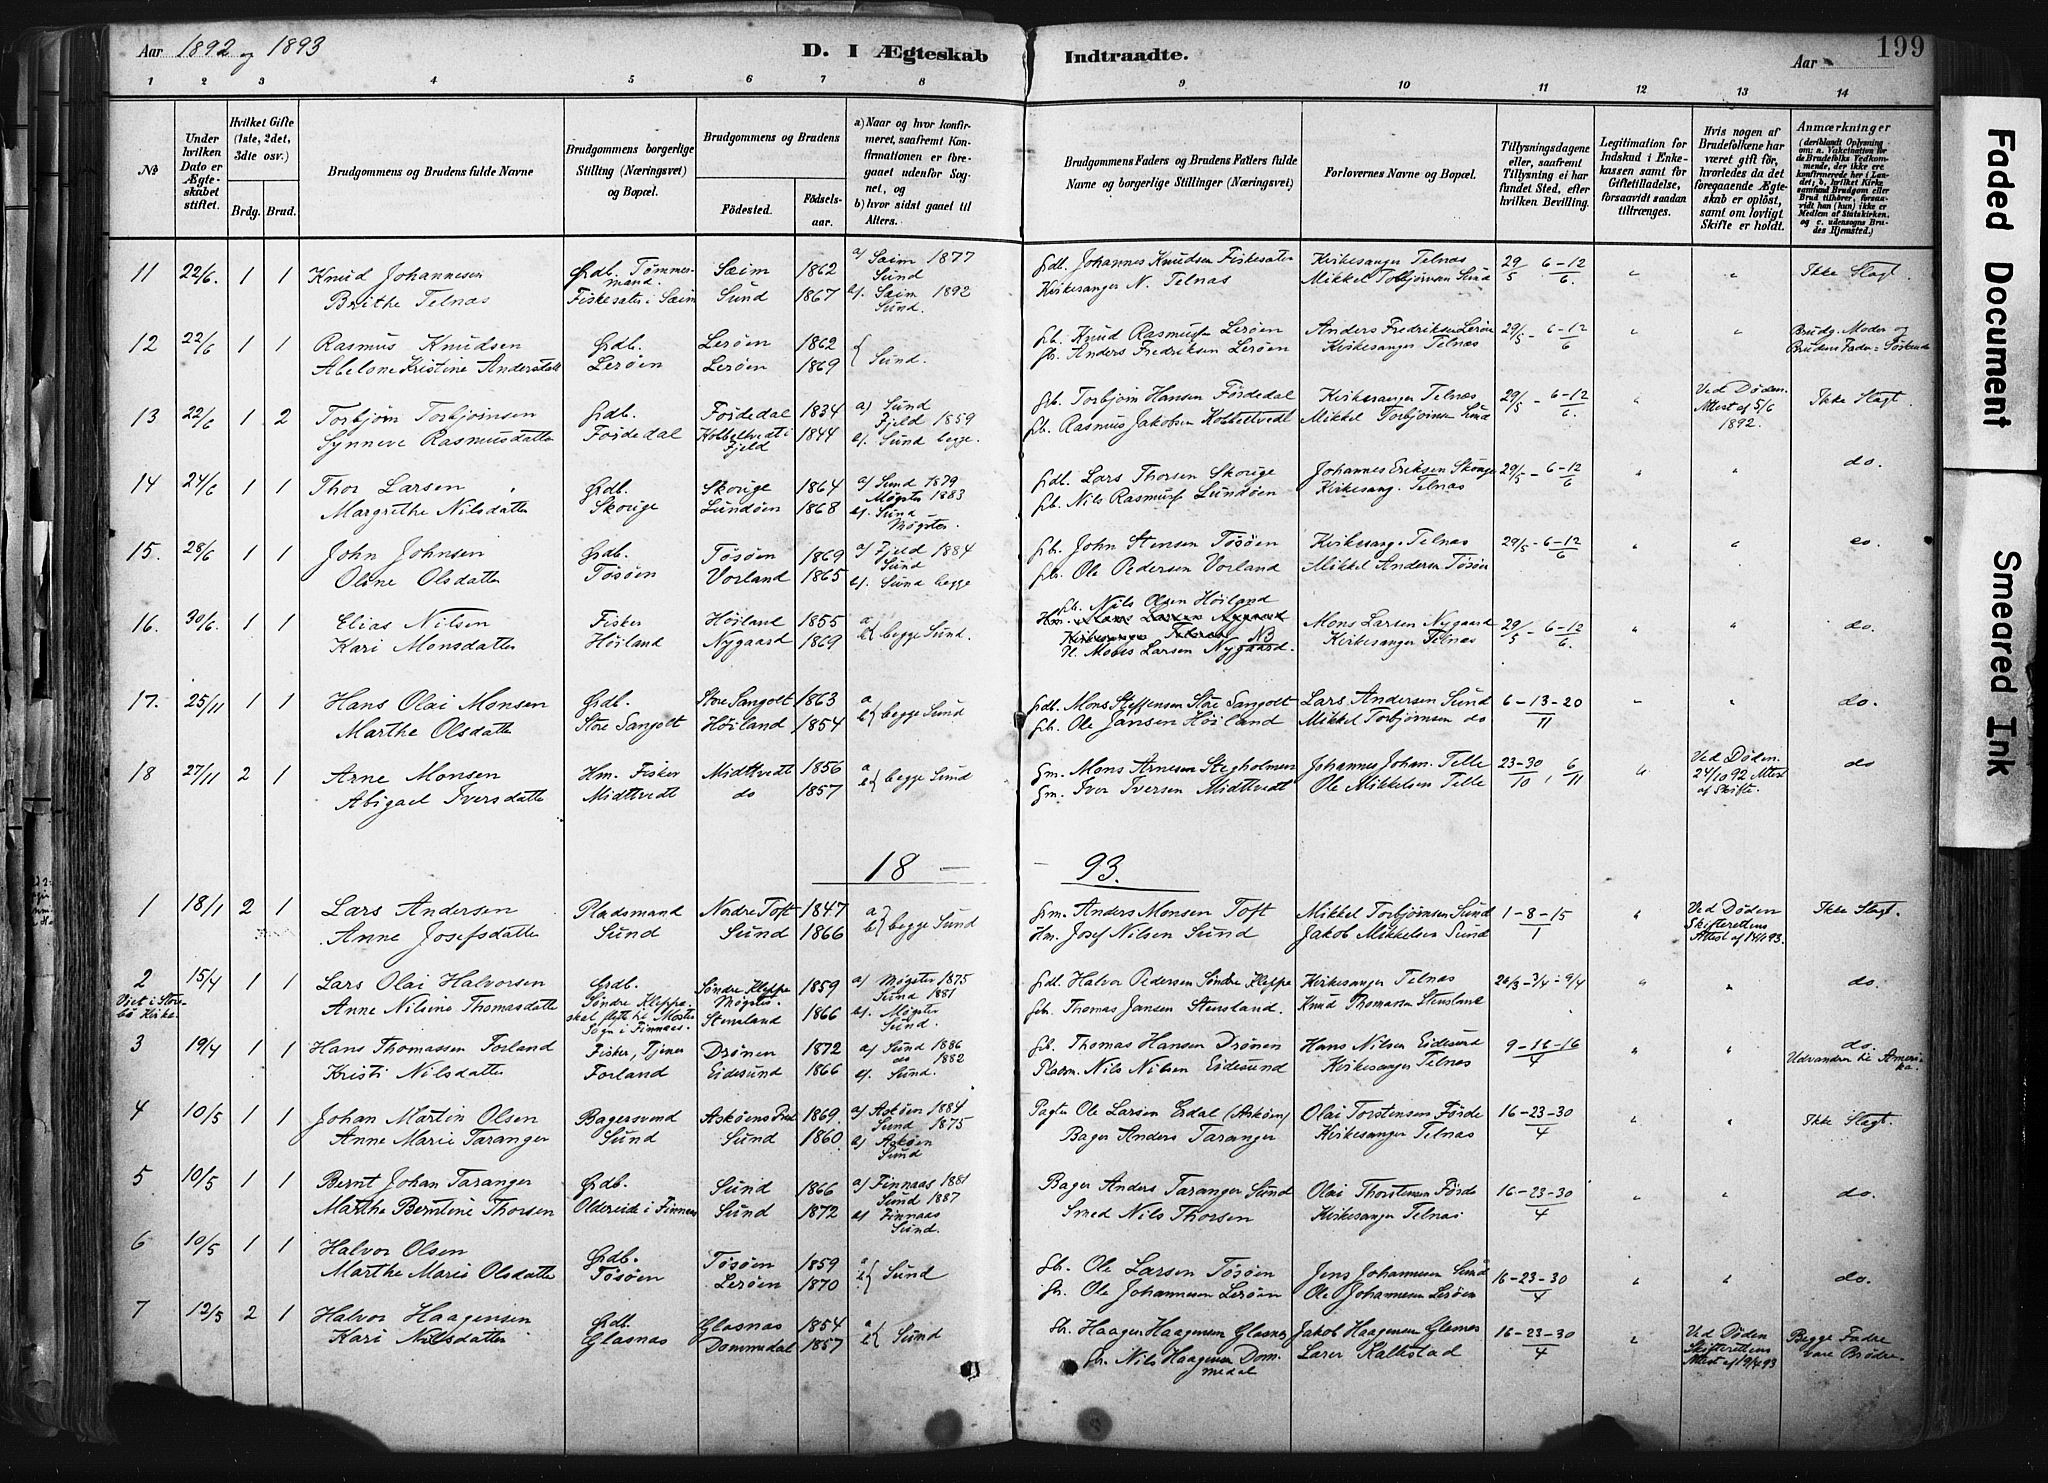 Aar 1892 og 1893
D. I Ægteskab Indtraadte.
Aar 199
1 2 3 4 5 6 7 8 9 10 11 12 13 14
No
Under hvilken Dato er Ægteskabet stiftet.
Hvilket Gifte (1ste, 2det, 3die osv.)
Brdg. Brud.
Brudgommens og Brudens fulde Navne
Brudgommens borgerlige Stilling (Næringsvei) og Bopæl.
Brudgommens og Brudens
Fødested. Fødselsaar.
a) Naar og hvor konfirmeret, saafremt Konfirmationen er foregaaet udenfor Sognet, og
b) hvor sidst gaaet til Alters.
Brudgommens Faders og Brudens Faders fulde Navne og borgerlige Stillinger (Næringsvei)
Forlovernes Navne og Bopæl.
Tillysningsdagene eller, saafremt Tillysning ei har fundet Sted, efter hvilken Bevilling.
Legitimation for Indskud i Enkekassen samt for Giftetilladelse, forsaavidt saadan tiltrænges.
Hvis nogen af Brudefolkene har været gift før, hvorledes da det foregaaende Ægteskab er opløst, samt om lovligt Skifte er holdt.
Anmærkninger
(deriblandt Oplysning om: a. Vakcination for de Brudefolks Vedkommende, der ikke ere konfirmerede her i Landet; b, hvilket Kirkesamfund Brudgom eller Brud tilhører, forsaavidt han (hun) ikke er Medlem af Statskirken, og c. udensogns Brudes Hjemsted.)
11 22/6. 1 1 Knud Johannesen Grdb. Tømmermand. Sæim 1862 a/ Saim 1877 Sund Grdb. Johannes Knudsen Fiskesæter Kirkesanger Telnæs 29/5 6-12/6. " " Ikke Slagt
Brithe Telnæs Fiskesæter i Sæim Sund 1867 b/. Saim 1892 Sund. Kirkesanger N. Telnæs Mikkel Torbjørnsen Sund
12 22/6 1 1 Rasmus Knudsen Grdb. Lerøen 1862 Sund. Gb. Knud Rasmusen Lerøen Anders Fredriksen Lerøen 29/5- 6-12/6 " " Brudg. Moder og
Abelone Kristine Andersdatt Lerøen Lerøen 1869 Gb. Anders Fredriksen Lerøen Kirkesanger Telnæs Brudens Fader = Søskende
13 22/6 1 2 Torbjørn Torbjørnsen Grdb. Fosdedal 1834 a) Sund Fjeld 1859 Gb. Torbjørn Hansen Førdedal Kirkesanger Telnæs 29/5- 6-12/6. " Ved Døden. Attest af 5/6 1892. Ikke Slagt.
Synneve Rasmusdatter Forsdedal Kobbeltvedt i Fjeld 1844 b/. Sund begge. Gb. Rasmus Jakobsen Kobbeltvedt Mikkel Torbjørnsen Sund
14 24/6 1 1 Thor Larsen Grdb. Skorige 1864 a/ Sund 1879 Møgster 1883 Grdb. Lars Thorsen Skorige Johannes Eriksen Skorige 29/5 - 6-12/6 " " do.
Margrethe Nilsdatter Skorige Lundøen 1868 b/. Sund Møgster. Gb. Nils Rasmus Lundøen Kirkesang. Telnæs
15. 28/6 1 1 John Johnsen Grdb. Tøsøen 1869 a/ Fjeld 1884 Sund Gb. John Stensen Tøsøen Kirkesange Telnæs 29/5 - 6-12/6 " " do.
Oline Olsdatter Tøsøen Vorland 1865 b/. Sund begge Gb. Ole Pedersen Vorland Mikkel Andersen Tøsøen
16. 30/6. 1 1 Elias Nilsen Fisker Høiland 1855 a b begge Sund. Gb. Nils Olsen Høiland Mons Larsen Nygaard 29/5 - 6-12/6. " " do.
Kari Monsdatter Høiland Nygaard 1869 NB Hl. Mons Larsen Nygaard. Kirkesanger Telnæs
17. 25/11 1 1 Hans Olai Monsen Grdb. Store Sangolt 1863 a b begge Sund Grdb. Mons Steffensen Store Sangolt Lars Andersen Sund 6-13-20/11 " " do.
Marthe Olsdatter Store Sangolt Høiland 1854 Gb. Ole Jansen Høiland Mikkel Torbjørnsen do
18 27/11 2 1 Arne Monsen Hm. Fisker Midttvedt 1856 a b begge Sund Gm. Mons Arnesen Stegholmen Johannes Johan. Telle 23-30/10, 6/11 " Ved Døden. 24/10 92 Attest af Skifte. do
Abigael Iversdatter Midttvedt do 1857 Gm. Iver Iversen Midttvedt Ole Mikkelsen Telle
18 — 93.
1 18/1 2 1 Lars Andersen Pladsmand Nordre Toft 1847 a b begge Sund Grm. Anders Monsen Toft Mikkel Torbjørnsen Sund 1-8-15/1 " Ved Døden Skifterettens Attest af 14/1 93. Ikke Slagt.
Anne Josefsdatter Sund Sund 1866 Hm. Josef Nilsen Sund Jakob Mikkelsen Sund
2 15/4 1 1 Lars Olai Halvorsen Grdb. Søndre Kleppe Møgster. 1859 a/ Møgster 1875 Sund 1881 Grdb. Halvor Pedersen Søndre Kleppe Kirkesanger Telnæs 26/3-3/4-9/4 " " do.
Viet i Storebø Kirke. Anne Nilsine Thomasdatter Søndre Kleppe. skal flytte til Moster Sogn i Finnaas. Stensland 1866 b/. Møgster Sund. Gb. Thomas Jansen Stensland. Knud Thomassen Stensland
3 19/4 1 1 Hans Thomassen Forland Fisker, Tjener Drønen 1872 a/ Sund 1886 do 1882 Gb. Thomas Hansen Drønen Hans Nilsen Eidesund 9-16-16/4 " " do.
Kristi Nilsdatter Forland Eidesund 1866 b/. Sund. Pladsm. Nils Nilsen Eidesund Kirkesanger Telnæs Udvandrer til Amerika.
4 10/5 1 1 Johan Martin Olsen Bagersvend Askøens Pred 1869. a/ Askøen 1884 Sund 1875 Pagter Ole Larsen Erdal (Askøen) Olai Torstensen Førde 16-23-30/4 " " Ikke Slagt.
Anne Marie Taranger Sund Sund 1860 b) Askøen Sund Bager Anders Taranger Kirkesanger Telnæs
5 10/5 1 1 Bernt Johan Taranger Grdb. Sund 1866 a) Finnaas 1881 Sund 1887 Bager Anders Taranger Sund Olai Thorstensen Førde 16-23-30/4 " " do.
Marthe Berntine Thorsen Oldereide i Finnaas Sund 1872 b) Finnaas Sund. Smed Nils Thorsen Kirkesanger Telnæs
6 10/5 1 1 Halvor Olsen Grdb. Tøsøen 1859 a b Sund Gb. Ole Larsen Tøsøen Jens Johannesen Sund 16-23-30/4 " " do.
Marthe Marie Olsdatter Tøsøen Lerøen 1870 Gr. Ole Johannesen Lerøen Ole Johannesen Lerøen
7 12/5 2 1 Halvor Haagensen Grdb. Glasnæs 1854 a b Sund Gr. Haagen Haagensen Glesnes Jakob Haagensen Glesnes 16-23-30/4 " Ved Døden Skifterettens Attest af 19/4 93 Begge Fædre vare Brødre.
Kari Nilsdatter Glasnæs Dommedal 1857 Gr. Nils Haagensen Dommedal Larer Kallestad
Faded Document
Smeared Ink